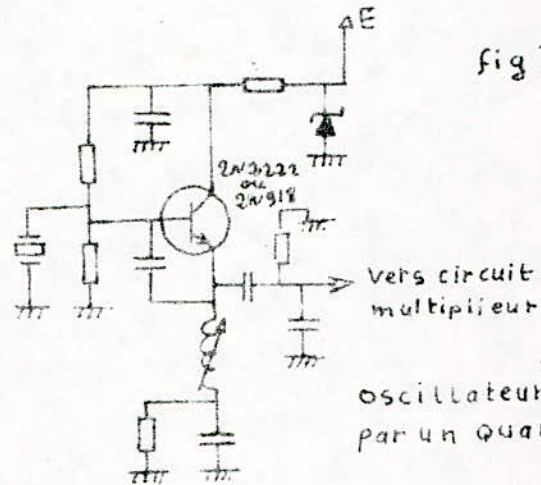 E
fig
ou
2N918
vers circuit
multiplieur
oscillateur
par un Quar